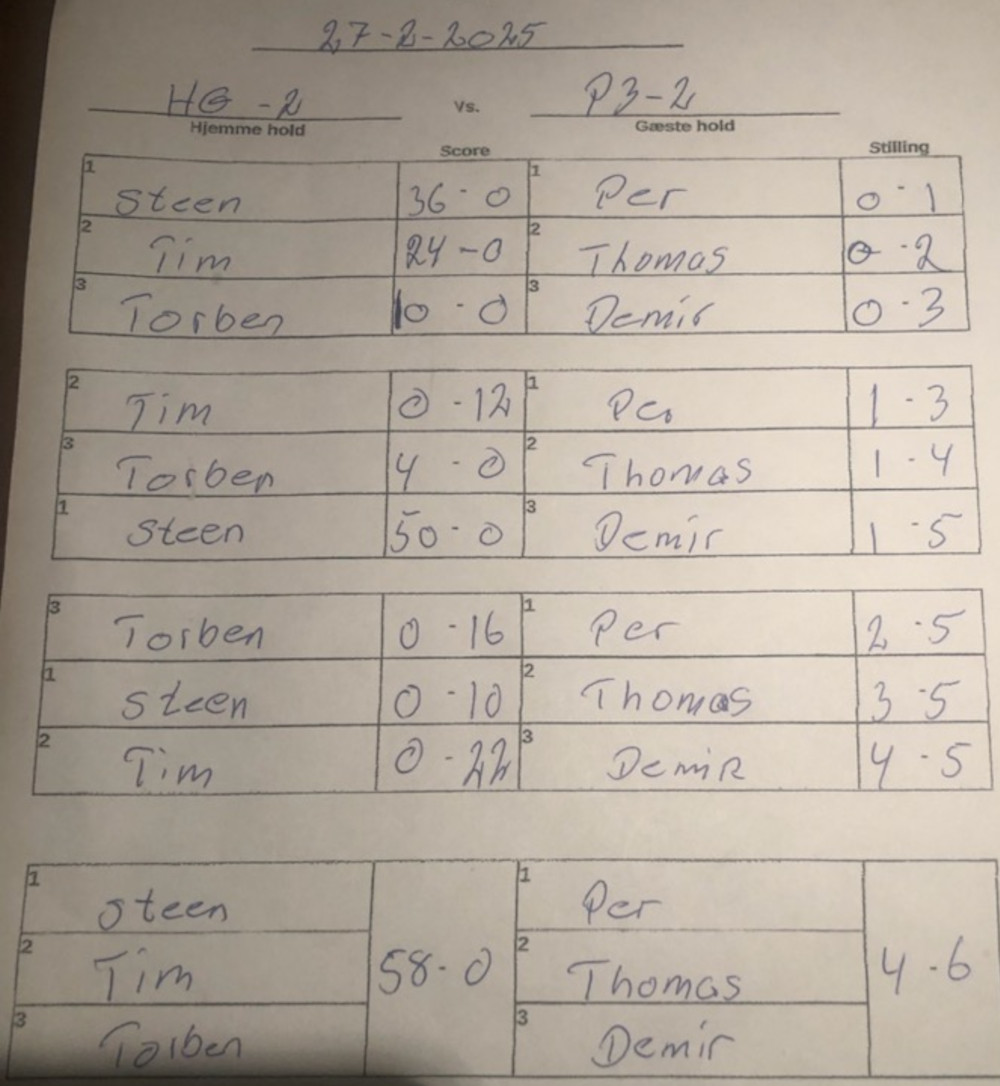 27-2-2025
HG-2 Vs. P3-2
Hjemme hold Gæste hold
Score Stilling
1 Steen 36-0 1 Per 0-1
2 Tim 24-0 2 Thomas 0-2
3 Torben 10-0 3 Demir 0-3
2 Tim 0-12 1 Per 1-3
3 Torben 4-0 2 Thomas 1-4
1 Steen 50-0 3 Demir 1-5
3 Torben 0-16 1 Per 2-5
1 Steen 0-10 2 Thomas 3-5
2 Tim 0-22 3 DemiR 4-5
1 Steen 1 Per
2 Tim 58-0 2 Thomas 4-6
3 Torben 3 Demir